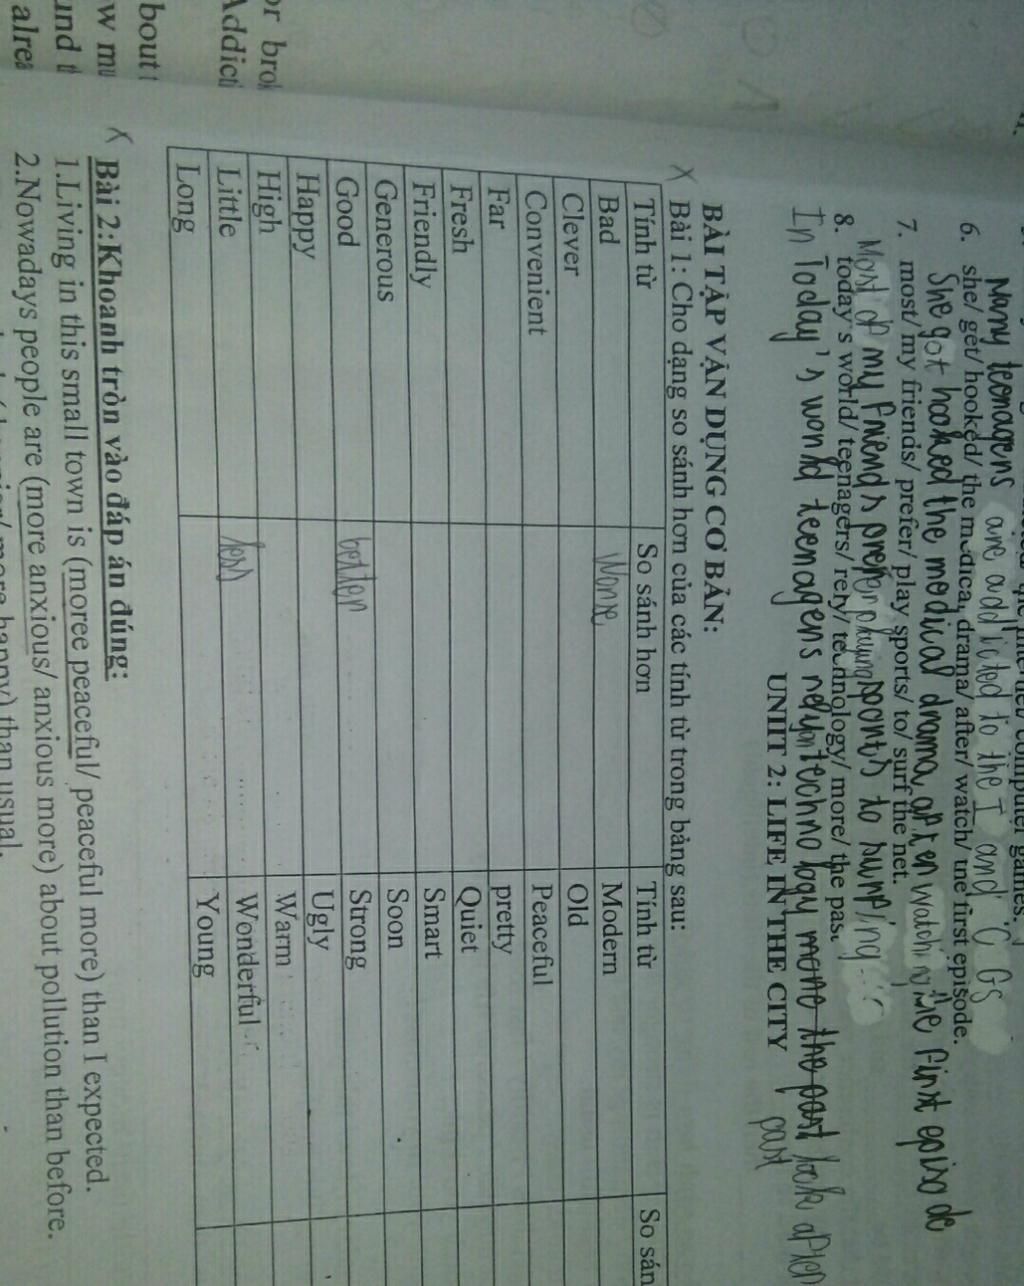 Many teenagers are addicted to the I and C Gs
6. she/ get/ hooked/ the medica, drama/ after/ watch/ the first episode.
She got hooked the medical drama after watching the First episode
7. most/ my friends/ prefer/ play sports/ to/ surf the net.
Most of my Friends prefer playing sports to
8. today's world/ teenagers/ rely/ technology/ more/ the past
In Today's world teenagers rely on technology more the past look after
past
UNIT 2: LIFE IN THE CITY
BÀI TẬP VẬN DỤNG CƠ BẢN:
X Bài 1: Cho dạng so sánh hơn của các tính từ trong bảng sau:
Tính từ So sánh hơn Tính từ So sán
Bad worse Modern
Clever Old
Convenient Peaceful
Far pretty
Fresh Quiet
Friendly Smart
Generous Soon
Good better Strong
Happy Ugly
High Warm
Little less Wonderful
Long Young
X Bài 2:Khoanh tròn vào đáp án đúng:
1.Living in this small town is (moree peaceful/ peaceful more) than I expected.
2.Nowadays people are (more anxious/ anxious more) about pollution than before.
more happy) than usual.
or brok
Addicti
bout
w mu
und t
alrea